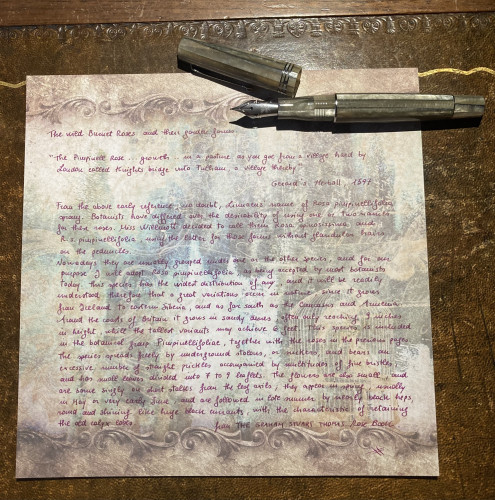 The wild Burnet Roses and their garden forms
"The Pimpinell Rose... groweth... in a pasture as you goe from a village hard by
London called Knights bridge unto Fulham, a village thereby"
Gerard's Herball 1597
From the above early reference, no doubt, Linnaeus' name of Rosa pimpinellifolia
sprang. Botanists have differed over the desirability of using one or two names
for these roses. Miss Willmott decided to call them Rosa spinosissima and
R. s. pimpinellifolia, using the latter for those forms without glandular hairs
on the pedicels.
Nowadays they are usually grouped under one or the other species, and for our
purpose I will adopt Rosa pimpinellifolia, as being accepted by most botanists
today. This species has the widest distribution of any, and it will be readily
understood, therefore, that a great variation occurs in nature, since it grows
from Iceland to eastern Siberia, and as far south as the Caucasus and Armenia.
Around the coasts of Britain it grows in sandy dunes, often only reaching 9 inches
in height, while the tallest variants may achieve 6 feet. This species is included
in the botanical group Pimpinellifoliae, together with the roses in the previous pages.
The species spreads freely by underground stolons, or suckers, and bears an
excessive number of straight prickles accompanied by multitudes of fine bristles,
and has small leaves divided into 7 to 9 leaflets. The flowers are also small, and
are borne singly on short stalks from the leaf axils; they appear in spring, usually
in May or very early June, and are followed in late summer by nearly black heps,
round and shining like huge black currants, with the characteristic of retaining
the old calyx lobes.
from THE GRAHAM STUART THOMAS Rose Book